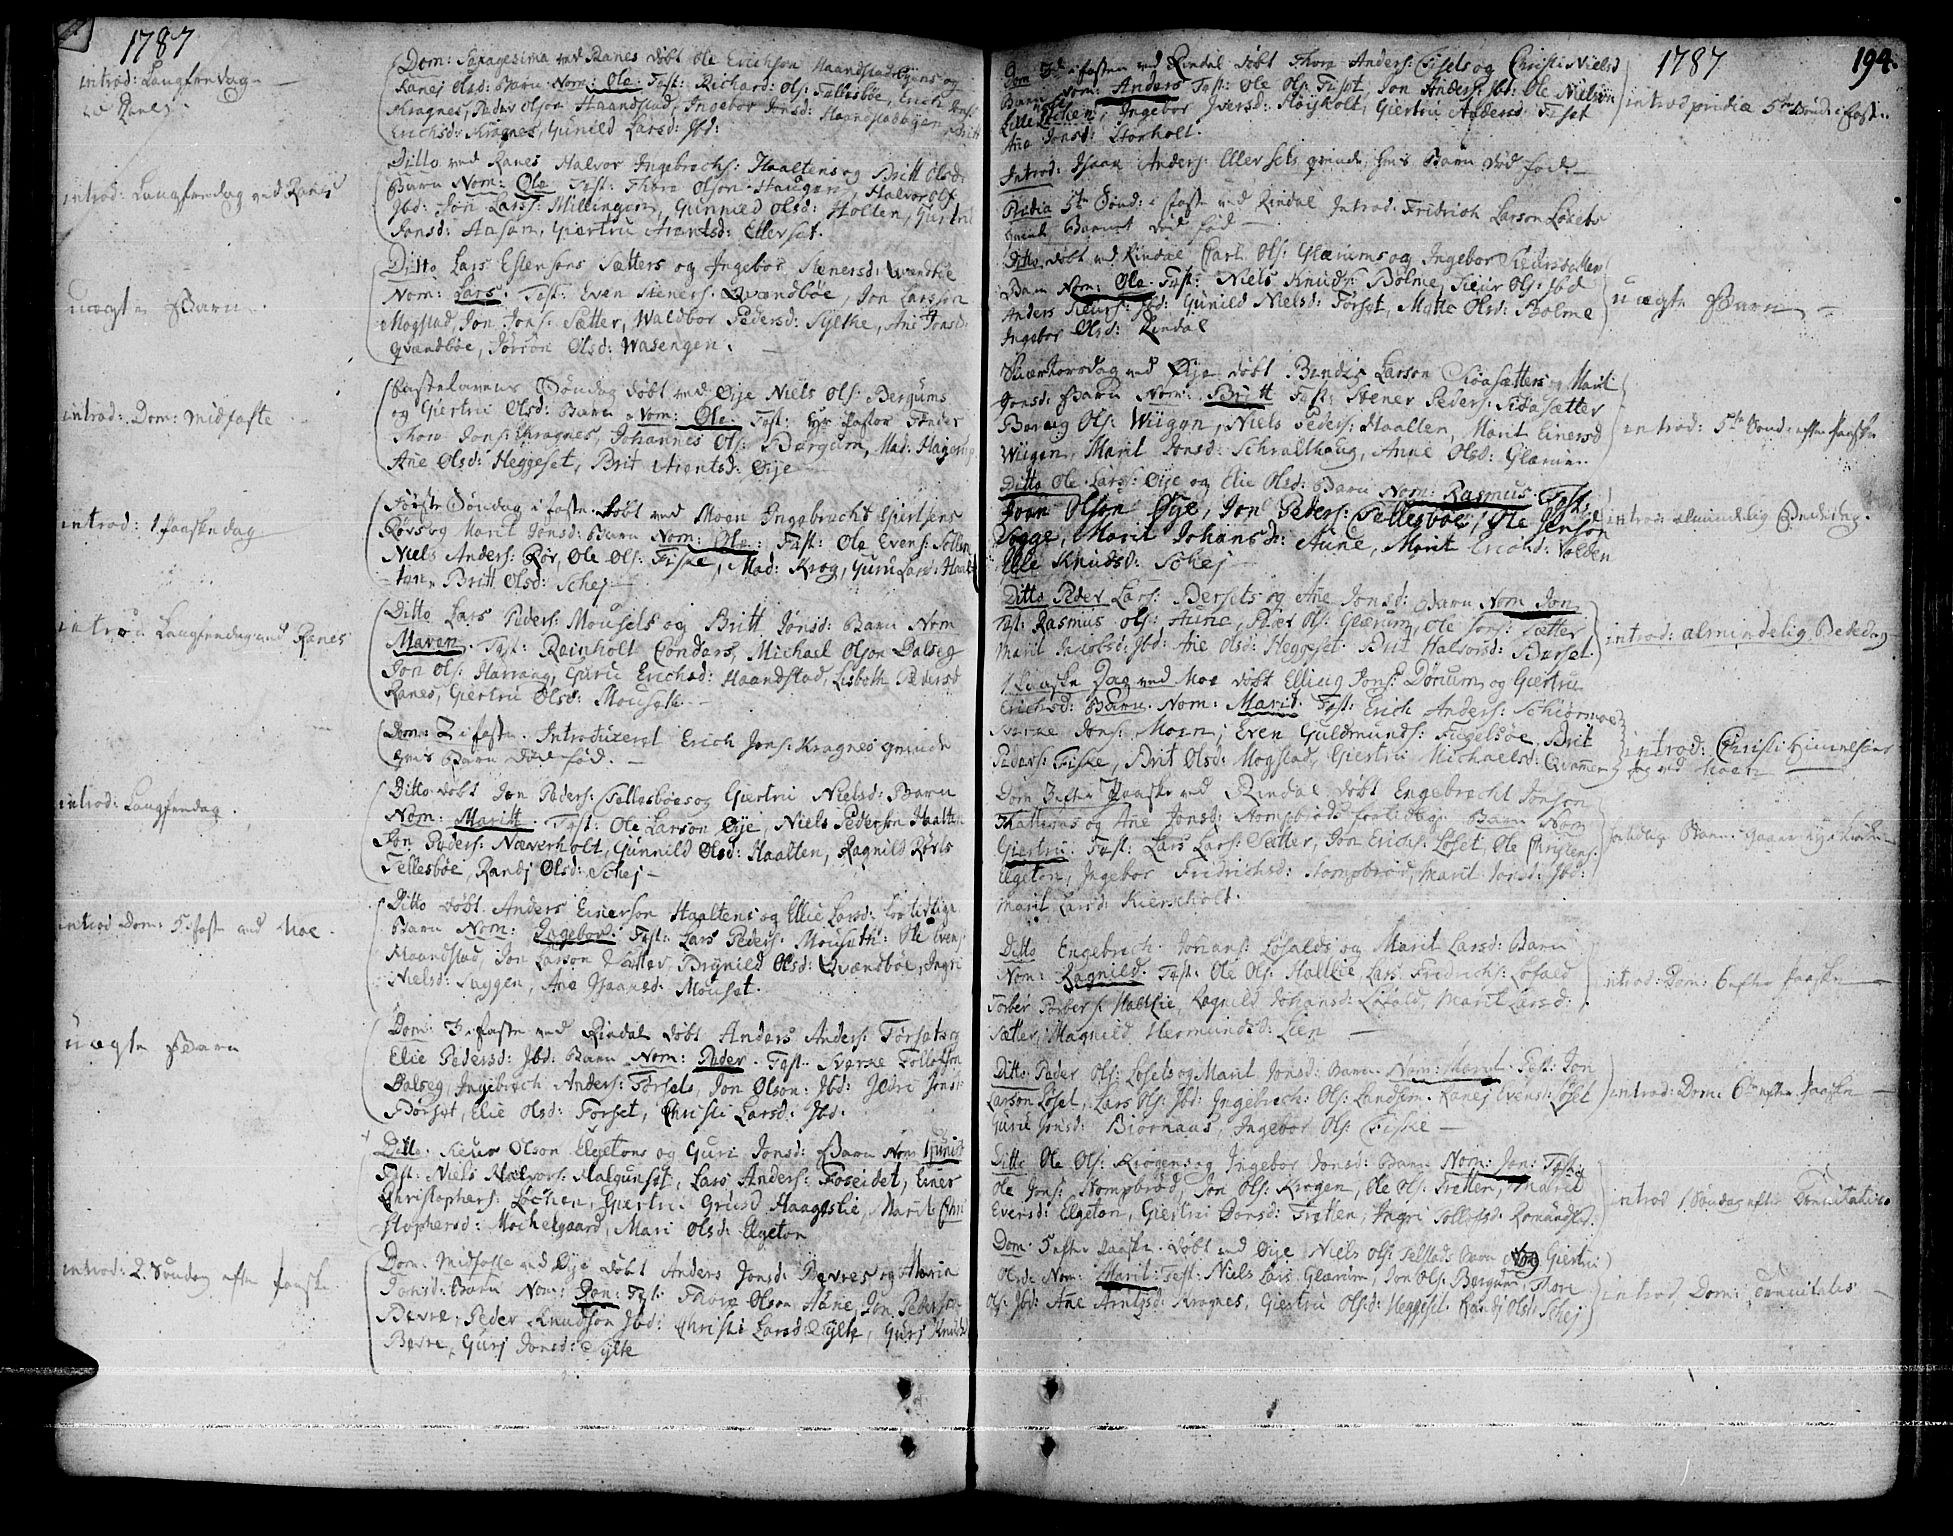 1787
introd: Langfredag
ved Ranes.
Dom: Sexagesima ved Ranes döbt Ole Erichson Haandstadböyens og
Ranej Olsd: Barn Nom: Ole. Test: Richard Ols: Tellesböe, Erich Jons:
Kragnes, Peder Olson Haandstad, Ingebor Jonsd: Haandstadböyen, Britt
Erichsd: Kragnes, Gunild Larsd: Ibd:
introd: Langfredag ved Ranes
Ditto ved Ranes Halvor Ingebrechs: Haaltens og Britt Olsd:
Barn Nom: Ole Test: Thore Olson Haugen, Halvor Ols:
Ibd: Jon Lars: Millingen, Gunnild Olsd: Holten, Giertru
Jonsd: Aasen, Giertru Arentsd: Ellerset.
uægte Barn.
Ditto Lars Estensons Sætters og Ingebor Stenersd: Qvændböe
Nom: Lars. Test: Even Steners: Qvændböe, Jon Larsson
Mogstad, Jon Jons: Sætter, Waldbor Pedersd: Sylte, Ane Jonsd:
Qvændböe, Jörön Olsd: Wasengen.
introd: Dom: Midfaste
Fastelavens Söndag döbt ved Öye Niels Ols: Bergums
og Giertru Olsd: Barn Nom: Ole. Test: Hr Pastor
Thore Jons: Kragnes, Johannes Ols: Bergum, Mad: Hagerup,
Ane Olsd: Heggeset, Brit Arentsd: Öye
introd: 1. Paaskedag
Förste Söndag i faste döbt ved Moen Ingebrecht Giertsens
Rövs og Marit Jonsd: Barn Nom: Ole. Test: Ole Evens:
Niels Anders: Röv, Ole Ols: Fiske, Mad: Krog, Guru Larsd: Haal-
ten, Britt Olsd: Schej
introd: Langfredag ved Ranes
Ditto Lars Peders: Mousets og Britt Jonsd: Barn Nom
Maren. Test: Reinholt, Michael Olson Dalseg
Jon Ols: Harrang, Guru Erichsd: Haandstad, Lisbeth Pedersd
Ranes, Giertru Olsd: Mouset
Dom: 2 i faste. Introduceret Erich Jons: Kragnes qvinde
hvis Barn död föd.
introd: Langfredag.
Ditto döbt Jon Peders: Tellesböes og Giertru Nielsd: Barn
Nom: Maritt. Test: Ole Larson Öye, Niels Pederson Haalten
Jon Peders: Næverholt, Gunnild Olsd: Haalten, Ragnild
Tellesböe, Randj Olsd: Schej
introd Dom: 5. i faste ved Moe.
Ditto döbt Anders Einerson Haaltens og Ellie Larsd: for tidlige
Barn Nom: Ingebor. Test: Lars Peders: Mouset: Ole Evens
Haandstad, Jon Larson Sætter, Brynild Olsd: Qvændböe, Ingri
Nielsd: Suggen, Ane Isaansd: Mouset.
uægte Barn
Dom: 3. i faste ved Rindal döbt Anders Anders: Törsets og
Elie Pedersd: Ibd: Barn Nom: Peder. Test: Sverke Tollofson
Dalseg, Ingebrech Anders: Törset, Jon Olson: Ibd: Joeri Jonsd:
Börset, Elie Olsd: Törset, Christi Larsd: Ibd.
Ditto. Siur Olson Elgetons og Guri Jonsd: Barn Nom Gunild
Test: Niels Halvors: Halgunset, Lars Anders: Foseidet, Einer
Christophers: Löchen, Giertru Haagslie, Marit Chri
stophersd: Mochelgaard, Mari Olsd: Elgeton
introd: 2. Söndag efter Paaske
Dom: Midfaste ved Öye döbt Anders Jonsd: Bevres og Maria
Jonsd: Barn Nom: Jon: Test: Thore Olson Aune, Jon Pederson
Bevre, Peder Knudson Ibd: Christi Larsd: Sylte, Gurj Knudsd:
Bevre, Gurj Jonsd: Sylte
1787
194.
Dom 3d i fasten ved Rindal döbt Thore Anders: Tisets og Christi Nielsd
Barn Nom: Anders Test: Ole Ols: Tiset, Jon Anders: Ibd: Ole Nielson
Lille Löchen, Ingebor Iversd: Höisholt, Giertru Andersd Tiset
Ane Jonsd: Storholt.
introd pridia 5te Sönd: i fast.
Introd: Isaan Anders: Ellersets qvinde, hvis Barn död föd
Pridia 5te Sönd: i faste ved Rindal Introd: Fridrich Larson Lösets
qvind, Barnet död föd
Ditto döbt ved Rindal Carl Ols: Glærums og Ingebor Siursdatter
Barn Nom: Ole. Test: Niels Knuds: Bolme, Siur Ols: Ibd
Anders Siurs: Ibd: Gunild Nielsd: Törset, Matte Olsd: Bolme
Ingebor Olsd: Rindal
uægte Barn
Skiærtorsdag ved Öye döbt Bendix Larson Sidasætters og Marit
Jonsd: Barn Nom: Britt Test: Stener Peders: Sidasætter
Baraag Ols: Wiigen, Niels Peders: Haalten, Marit Einersd
Wiigen, Marit Jonsd: Schralthaug, Anne Olsd: Glærum.
introd: 5te Sönd: efter Paaske
Ditto Ole Lars: Öye og Elie Olsd: Barn Nom: Rasmus Test:
Joen Olson Öye, Jon Peders: Tellesböe, Ole Jenson
Sogge, Marit Johansd: Aune, Marit Erichsd: Volden
Elle Knudsd: Schej
introd: almindelig Bededag.
Ditto Peder Lars: Bersets og Ane Jonsd: Barn Nom Jon
Test: Rasmus Ols: Aune, Peder Ols: Glærum, Ole Jons: Sætter
Marit Jacobsd: Ibd: Ane Olsd: Heggeset. Brit Halvorsd: Berset
introd: almindelig Bededag
1 Paaske Dag ved Moe döbt Elling Jons: Dörum og Giertru
Erichsd: Barn. Nom: Marit. Test: Erich Anders: Schiörmoe
Sverke Jons: Moen, Even Guldmunds: Fugelsöe, Brit
Peders: Fiske, Brit Olsd: Mogstad, Giertru Michaelsd: Qvammen
introd: Christi Himmelfart
Dag ved Moen
Dom 3 efter Paaske ved Rindal döbt Engebrecht Jonson
og Ane Jonsd: Stompbröds fortidlige Barn Nom
Giertru. Test: Lars Lars: Sætter, Jon Erichs: Löset, Ole Christens:
Elgeton, Ingebor Fridrichsd: Stompbröd, Marit Jonsd: Ibd:
Marit Larsd: Kierscholt.
Ditto Engebrech Johans: Löfalds og Marit Larsd: Barn
Nom: Ragnild. Test: Ole Ols: Haltlie, Lars Fridrichs: Löfald
Torber Torbers: Haltlie, Ragnild Johansd: Löfald, Marit Larsd:
Sætter, Magnild Hermundsd: Lien
introd: Dom: 6 efter Paaske
Ditto Peder Ols: Lösets og Marit Jonsd: Barn Nom: Marit Test: Jon
Larson Löset, Lars Ols: Ibd: Ingebrech: Ols: Landsem. Ranej Evensd: Löset
Guru Jonsd: Biörnaas, Ingebor Ols: Fiske
introd: Dom: 6te efter Paaske
Ditto Ole Ols: Krogens og Ingebor Jonsd: Barn Nom: Jon: Test:
Ole Jons: Stompbröd, Jon Ols: Krogen, Ole Ols: Tretten, Marit
Eversd: Elgeton, Giertru Jonsd: Tretten, Ingri Tollofsd: Romundstad
introd 1 Söndag efter Trinitatis
Dom. 5 efter Paaske. döbt ved Öye Niels Ols: Telstads Barn og Giertru
Olsd: Nom: Marit: Test: Niels Lars Glærum, Jon Ols: Bergum Thore
Ols: Ibd: Ane Arntsd: Kragnes, Giertru Olsd: Heggeset. Randj Olsd: Schej
introd. Dom: Trinitatis